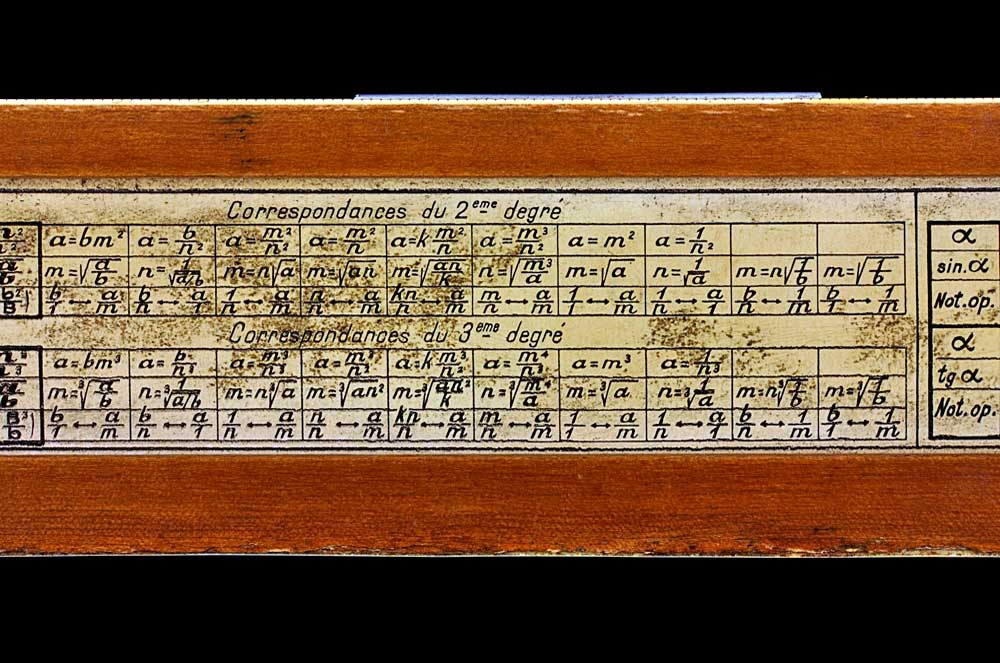 Correspondances du 2eme degré
a=bm² a=b/n² a=m²/n² a=m²/n a=k m²/n² a=m³/n² a=m² a=1/n²
m=√(a/b) n=1/√(a/b) m=n√a m=√(an) n=√(m³/a) m=√a n=1/√a m=n√(1/b) m=√(1/b)
b/1↔a/m b/n↔a/1 1/n↔a/m n/n↔a/m kn/n↔a/m m/n↔a/m 1/1↔a/m 1/n↔a/1 b/n↔1/m b/1↔1/m
Correspondances du 3eme degré
a=bm³ a=b/n³ a=m³/n³ a=k m³/n³ a=m⁴/n³ a=m³ a=1/n³
m=³√(a/b) m=n³√a m=³√(an²) n=³√(m⁴/a) m=³√a m=n³√(1/b) m=³√(1/b)
b/1↔a/m b/n↔a/1 1/n↔a/m n/n↔a/m kn/n↔a/m m/n↔a/m 1/1↔a/m 1/n↔a/1 b/n↔1/m b/1↔1/m
α
sin.α
Not.op.
α
tg α
Not.op.